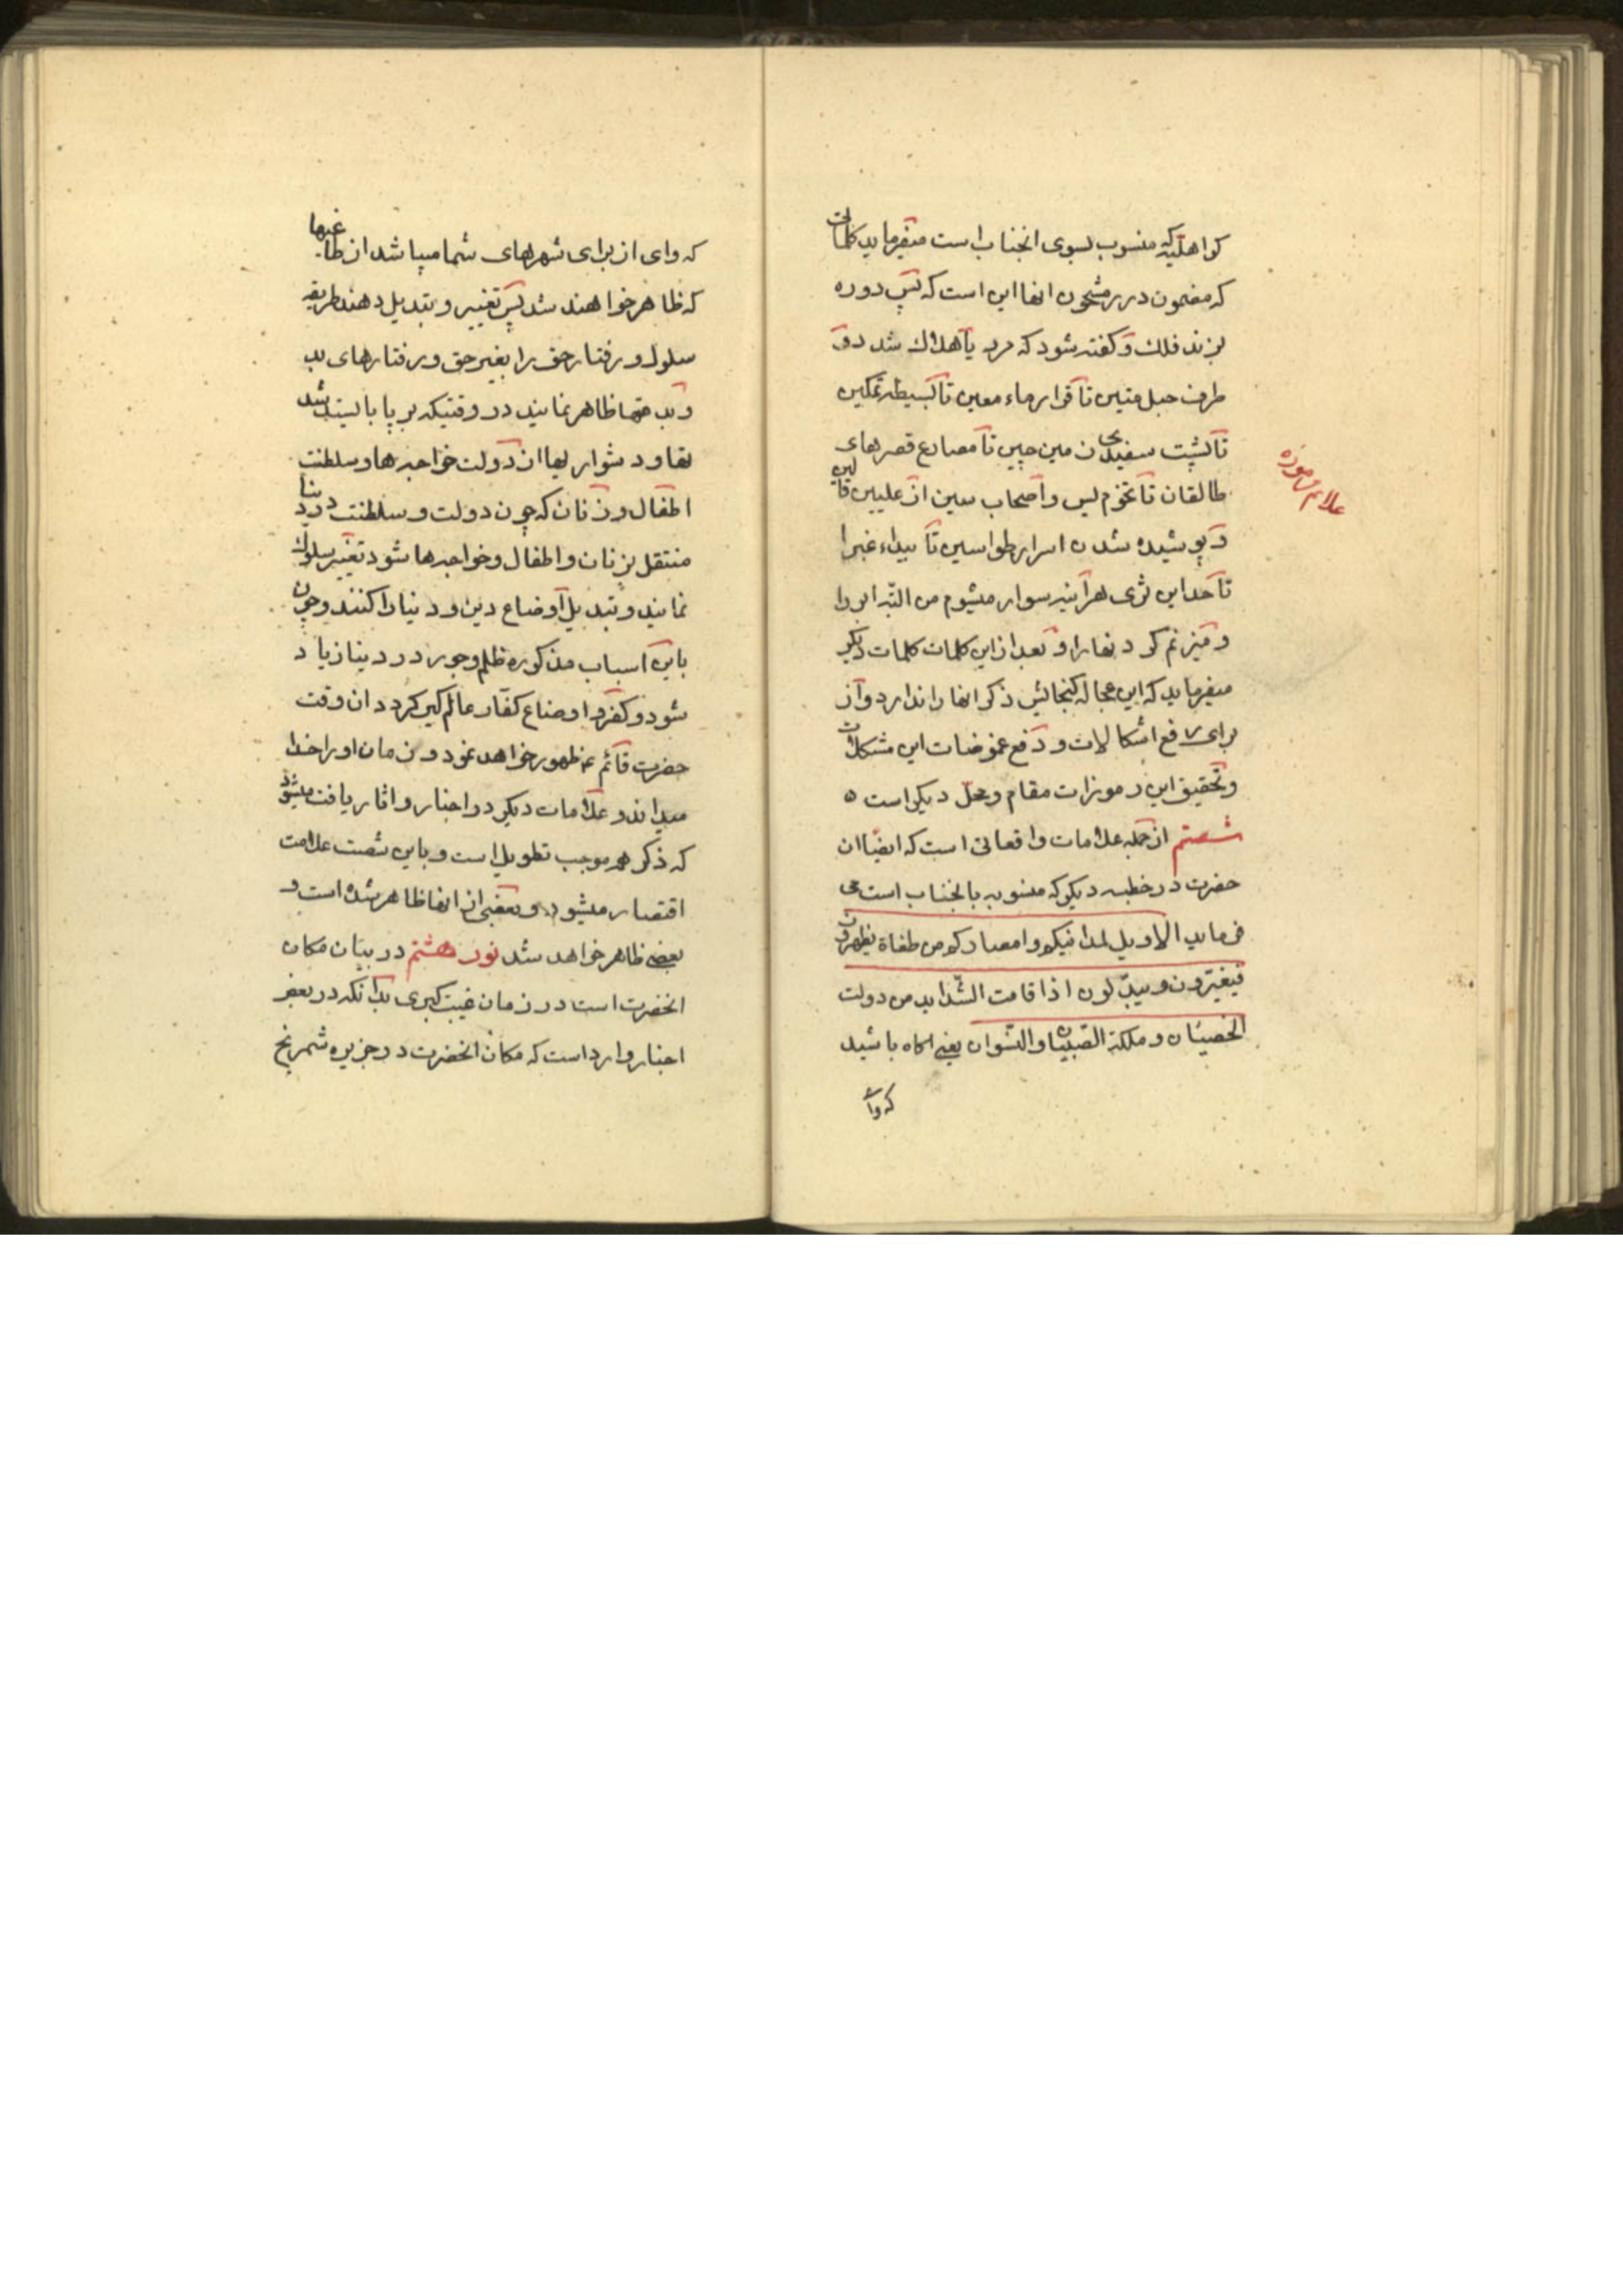 کواهلیه که منسوب بسوی انجناب است میفرماید کلمات
که مضمون درر مشحون انها این است که پس دوره
بزند فلک و کفته شود که مرد یا هلاک شد دو
طرف حبل متین تا قرار ماء معین تا بسیطه تمکین
تا پشت سفیدی ن مین چین تا مصارع قصرهای
طالقان تا تخوم یس و اصحاب سین از علیین
و پوشیده شدن اسرار طواسین تا بیداء غبرا
تا حد این ثری هرآینه سوار میشوم من البته ابر را
و میزنم کردنها را و بعد از این کلمات کلمات دیکر
میفرماید که این عجاله کنجائیش ذکر انها را ندارد و از
برای رفع اشکالات و دفع غموضات این مشکلات
و تحقیق این رموزات مقام و محل دیکر است ه
شصتم از جمله علامات واقعاتی است که ایضا ان
حضرت در خطبه دیکر که منسوبه بانجناب است می
فرماید الا و یل لمداینکم و امصارکم من طغاة یظهرون
فیغیرون و یبدلون اذا قامت الشداید من دولت
الخصیان و ملکة الصبیان و النسوان یعنی اکاه باشید
که وای
علائم رموزه
که وای از برای شهرهای شما میباشد از طاغیها
که ظاهر خواهند شد پس تغییر و تبدیل دهند طریقه
سلوک و رفتار حق را بغیر حق و رفتارهای بد
و بدعتها ظاهر نمایند در وقتیکه بر پا بایستد شد
تها و دشواریها از دولت خواجه ها و سلطنت
اطفال و زنان که چون دولت و سلطنت در دنیا
منتقل بزنان و اطفال و خواجه ها شود تغییر سلوک
نمایند و تبدیل اوضاع دین و دنیا را کنند و چون
باین اسباب مذکوره ظلم و جور در دنیا زیاد
شود و کفر و اوضاع کفار عالم کیر کردد ان وقت
حضرت قائم ع ظهور خواهد نمود و زمان او را خدا
میداند و علامات دیکر در اخبار و اثار یافت میشود
که ذکر همه موجب تطویل است و باین شصت علامت
اقتصار میشود و بعضی از انها ظاهر شده است و
بعضی ظاهر خواهد شد نور هشتم در بیان مکان
انحضرت است در زمان غیبت کبری بدانکه در بعض
اخبار وارد است که مکان انحضرت در جزیره شمریخ